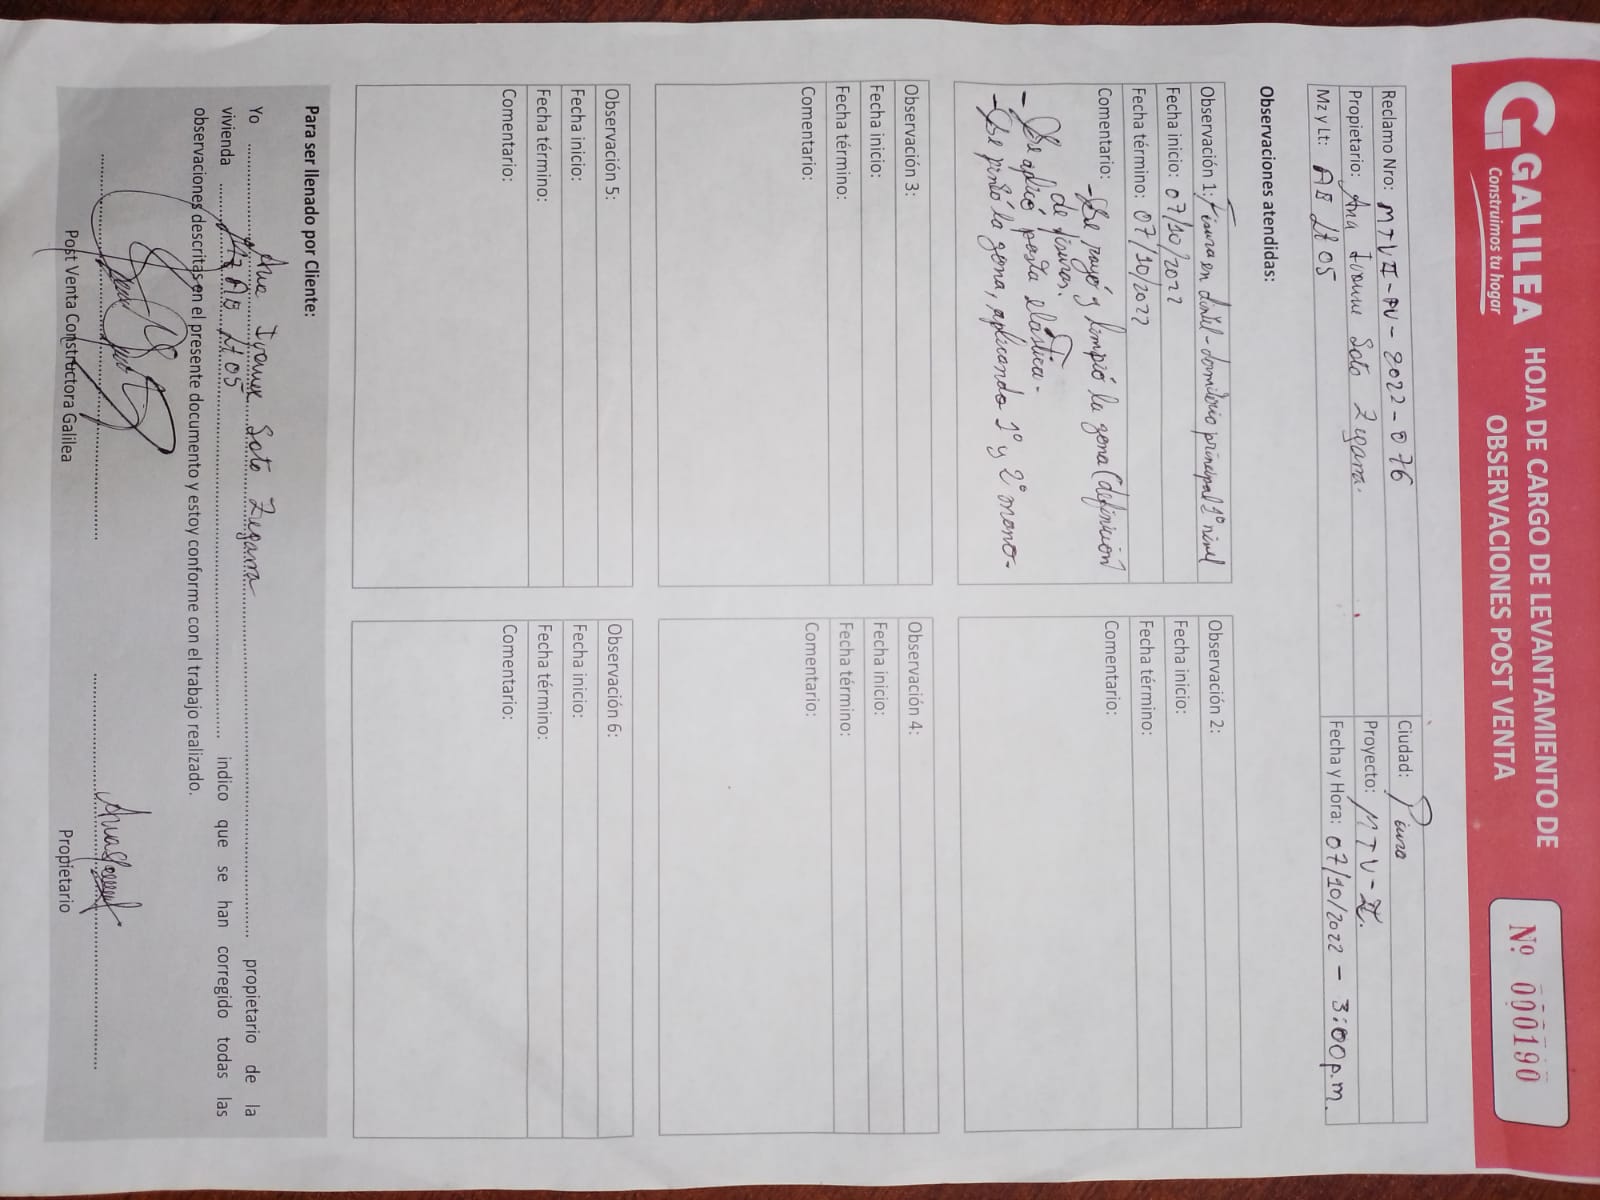 GALILEA
Construimos tu hogar
HOJA DE CARGO DE LEVANTAMIENTO DE
OBSERVACIONES POST VENTA
Nº 000190
Reclamo Nro: MTVII-PV-2022-076
Ciudad: Piura
Propietario: Ana Ivonne Soto Zegarra.
Proyecto: MTV-II.
Mz y Lt: AB Lt 05
Fecha y Hora: 07/10/2022 - 3:00 p.m.
Observaciones atendidas:
Observación 1: Fisura en dintel-dormitorio principal 1º nivel
Fecha inicio: 07/10/2022
Fecha término: 07/10/2022
Comentario: -Se rayó y limpió la zona (definición
de fisuras.
-Se aplicó pasta elástica.
-Se pintó la zona, aplicando 1º y 2º mano.
Observación 2:
Fecha inicio:
Fecha término:
Comentario:
Observación 3:
Fecha inicio:
Fecha término:
Comentario:
Observación 4:
Fecha inicio:
Fecha término:
Comentario:
Observación 5:
Fecha inicio:
Fecha término:
Comentario:
Observación 6:
Fecha inicio:
Fecha término:
Comentario:
Para ser llenado por Cliente:
Yo Ana Ivonne Soto Zegarra propietario de la
vivienda Mz AB Lt 05 indico que se han corregido todas las
observaciones descritas en el presente documento y estoy conforme con el trabajo realizado.
Post Venta Constructora Galilea
Propietario